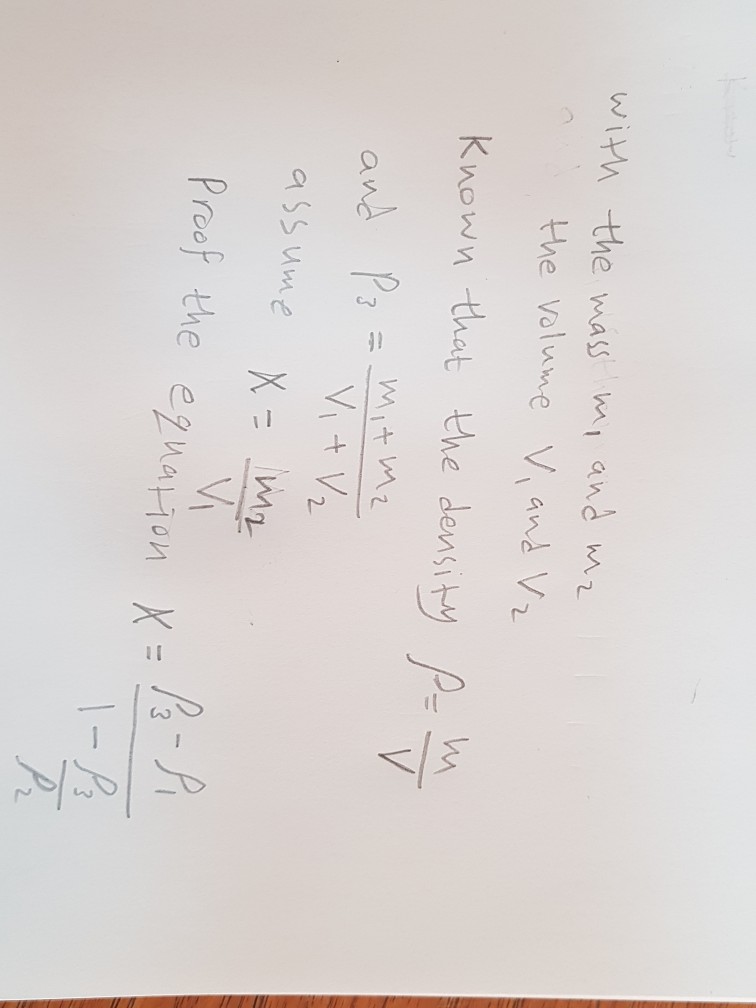 with the mass m₁ and m₂
the volume V₁ and V₂
Known that the density ρ = m/V
and ρ₃ = (m₁ + m₂)/(V₁ + V₂)
assume X = m₂/V₁
Proof the equation X = (ρ₃ - ρ₁)/(1 - ρ₃/ρ₂)